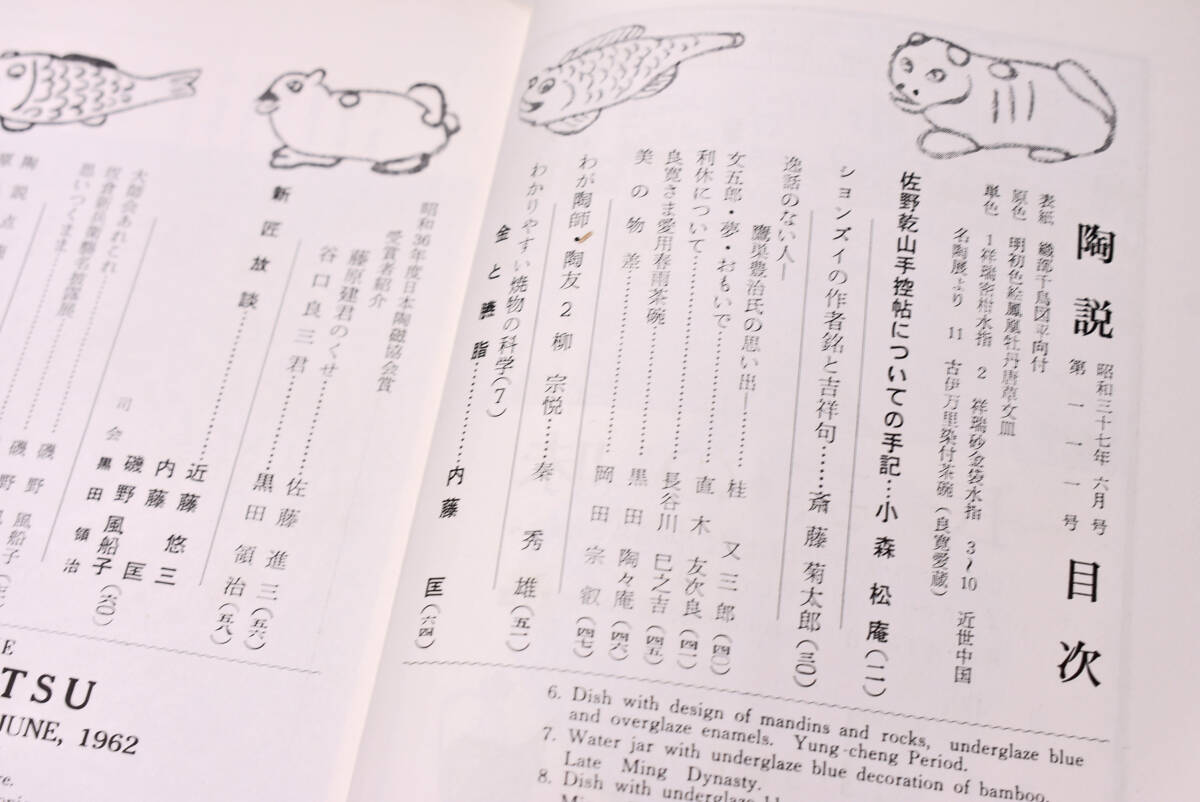 陶説 昭和三十七年六月号 第一一一号 目次
表紙 織部千鳥図平向付
原色 明初色絵鳳凰牡丹唐草文皿
単色 1 祥瑞蜜柑水指 2 祥瑞砂金袋水指 3~10 近世中国
名陶展より 11 古伊万里染付茶碗(良寛愛蔵)
佐野乾山手控帖についての手記…小森松庵(一一)
ションズイの作者銘と吉祥句……斎藤菊太郎(三〇)
逸話のない人―
鷹巣豊治氏の思い出―……桂又三郎(四〇)
文五郎・夢・おもいで……直木友次良(四一)
利休について……長谷川巳之吉(四五)
良寛さま愛用春雨茶碗……黒田陶々庵(四六)
美の物差……岡田宗叡(四七)
わが陶師・陶友2 柳宗悦…秦秀雄(五一)
わかりやすい焼物の科学(7)
金と臙脂……内藤匡(六四)
昭和36年度日本陶磁協会賞
受賞者紹介
藤原建君のくせ……佐藤進三(五六)
谷口良三君……黒田領治(五八)
新匠放談……近藤悠三
内藤匡
磯野風船子(六〇)
司会 黒田領治
大師会あれこれ……磯野風船子
思いつくまま
陶説
TSU
JUNE, 1962
6. Dish with design of mandins and rocks, underglaze blue
and overglaze enamels. Yung-cheng Period.
7. Water jar with underglaze blue decoration of bamboo.
Late Ming Dynasty.
8. Dish with underglaze